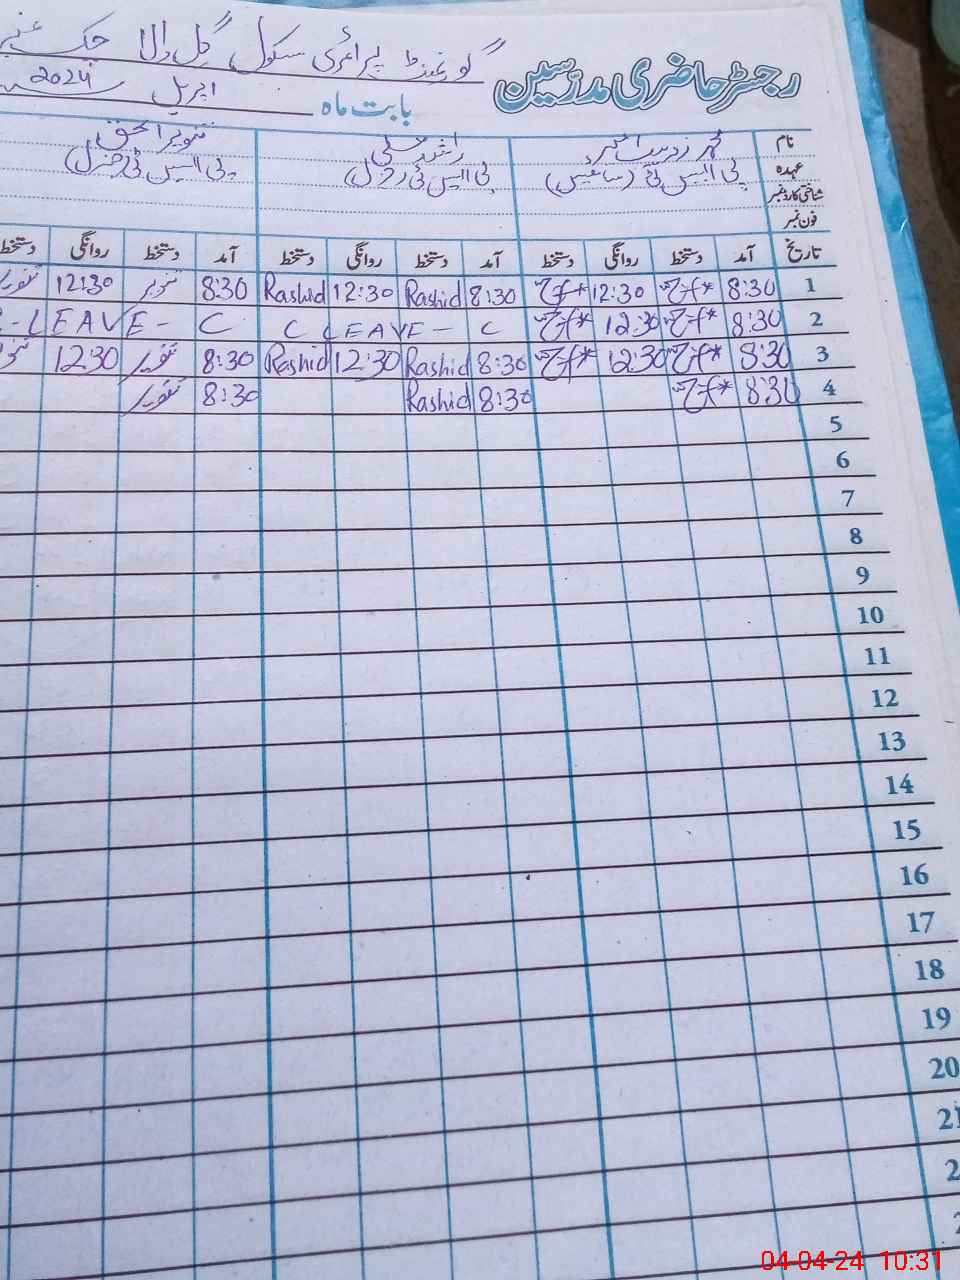 گورنمنٹ پرائمری سکول گل والا چک
رجسٹر حاضری مدرسین
بابت ماہ اپریل 2024
نام محمد راشد علی تنویر الحق
عہدہ پی ایس ٹی (سائنس) پی ایس ٹی جنرل پی ایس ٹی جنرل
شناختی کارڈ نمبر
فون نمبر
تاریخ آمد دستخط روانگی دستخط آمد دستخط روانگی دستخط آمد دستخط روانگی دستخط
1 8:30 12:30 8:30 Rashid 12:30 Rashid 8:30 تنویر 12:30 تنویر
2 8:30 12:30 C LEAVE - C C - LEAVE - C
3 8:30 12:30 8:30 Rashid 12:30 Rashid 8:30 تنویر 12:30 تنویر
4 8:30 8:30 Rashid 8:30 تنویر
5
6
7
8
9
10
11
12
13
14
15
16
17
18
19
20
21
04-04-24 10:31